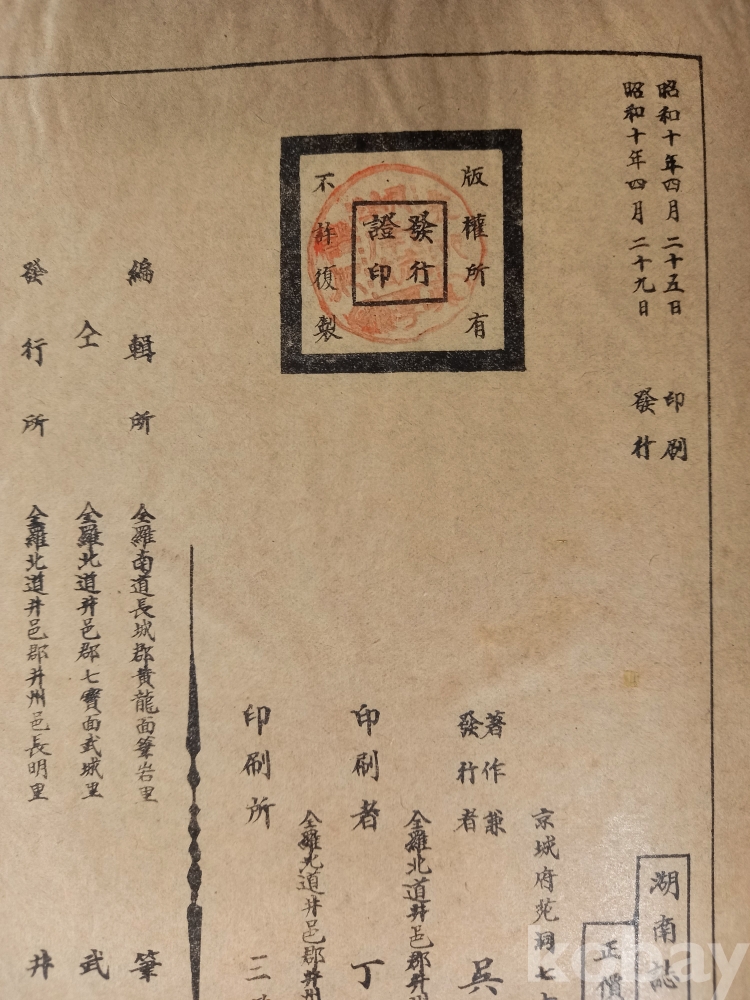 昭和十年四月二十五日 印刷
昭和十年四月二十九日 發行
版權所有
發行
證印
不許復製
湖南誌
正價
京城府苑洞七
著作兼
發行者 吳
全羅北道井邑郡井
印刷者 丁
全羅北道井邑郡井州
印刷所 三
編輯所 全羅南道長城郡黃龍面筆岩里 筆
仝 全羅北道井邑郡七寶面武城里 武
發行所 全羅北道井邑郡井州邑長明里 井
kobay